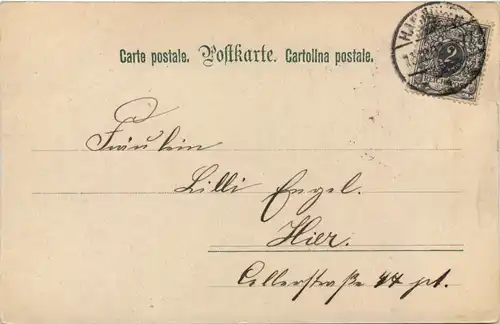 Carte postale. Postkarte. Cartolina postale.
2
Fräulein
Lilli Engel.
Hier.
Cellerstraße 44 pt.